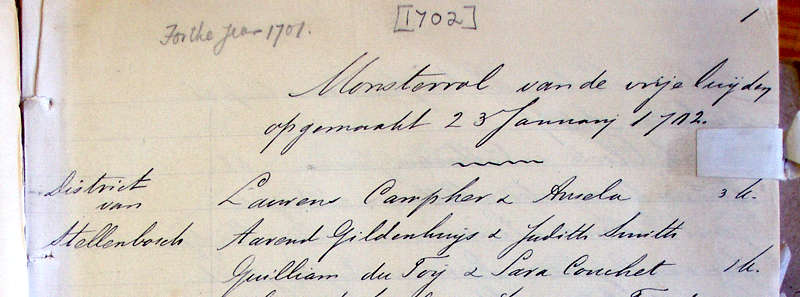 For the year 1701.
[1702]
1
Monsterrol van de vrije luijden
opgemaakt 23 Januarij 1702.
District
van
Stellenbosch
Laurens Campher & Ansela 3 k.
Aarend Gildenhuijs & Judith Smith
Guilliam du Toy & Sara Couchet 1 k.